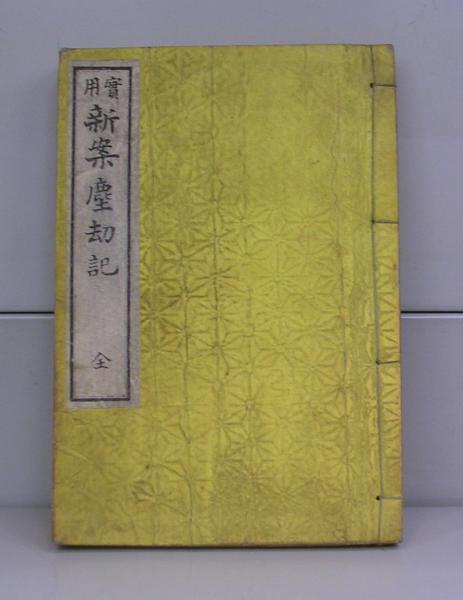 實用
新案塵劫記
全